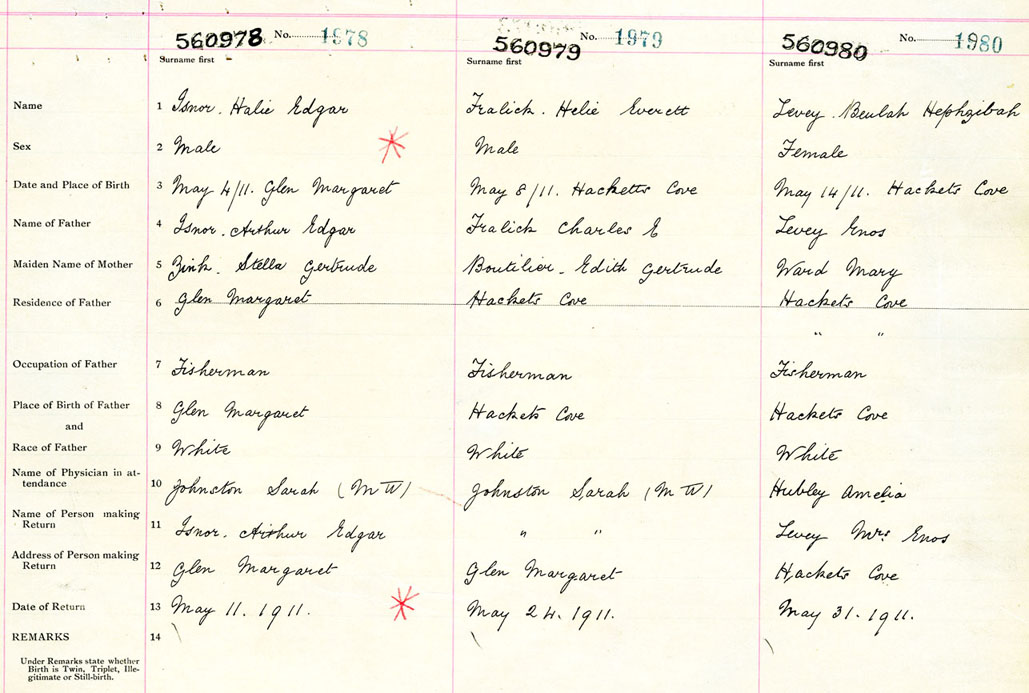 560978 No. 1978 560979 No. 1979 560980 No. 1980
Surname first Surname first Surname first
Name 1 Isnor. Halie Edgar Fralick. Helie Everett Levey. Beulah Hephzibah
Sex 2 Male Male Female
Date and Place of Birth 3 May 4/11. Glen Margaret May 8/11. Hacketts Cove May 14/11. Hackets Cove
Name of Father 4 Isnor. Arthur Edgar Fralick Charles E Levey Enos
Maiden Name of Mother 5 Zink. Stella Gertrude Boutilier. Edith Gertrude Ward Mary
Residence of Father 6 Glen Margaret Hackets Cove Hackets Cove
" "
Occupation of Father 7 Fisherman Fisherman Fisherman
Place of Birth of Father 8 Glen Margaret Hackets Cove Hackets Cove
and
Race of Father 9 White White White
Name of Physician in at-
tendance 10 Johnston Sarah (M W) Johnston Sarah (M W) Hubley Amelia
Name of Person making
Return 11 Isnor. Arthur Edgar " " Levey Mrs Enos
Address of Person making
Return 12 Glen Margaret Glen Margaret Hackets Cove
Date of Return 13 May 11. 1911. May 24. 1911. May 31. 1911.
REMARKS 14
Under Remarks state whether
Birth is Twin, Triplet, Ille-
gitimate or Still-birth.